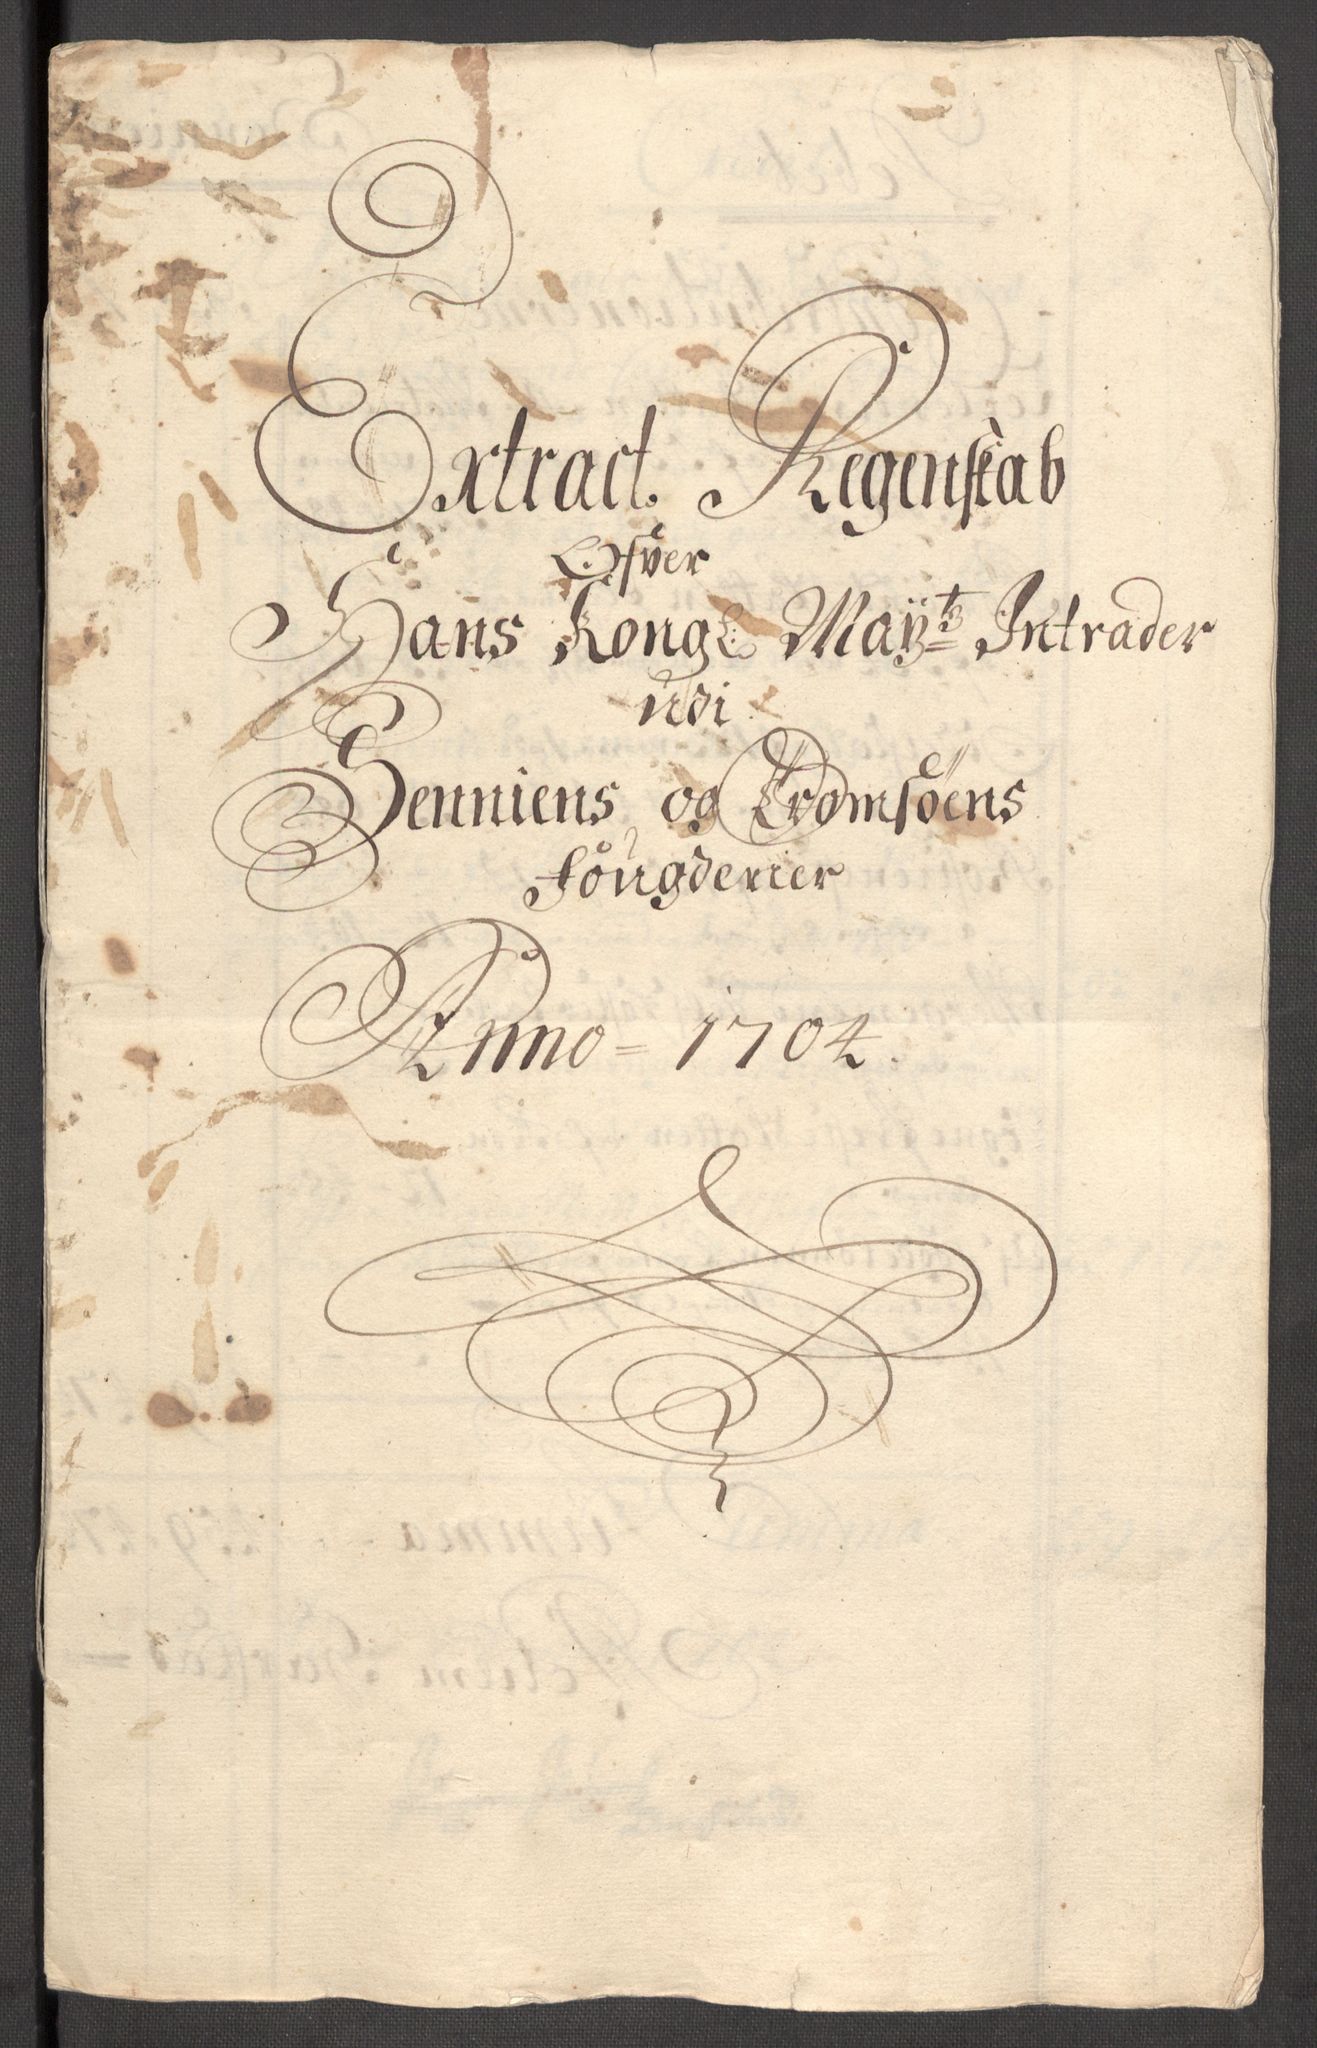 Extract Regenskab
Ofver
Hans Kongl: Maÿts Intrader
udi
Senniens og Tromsøens
Fougderier
Anno = 1704.